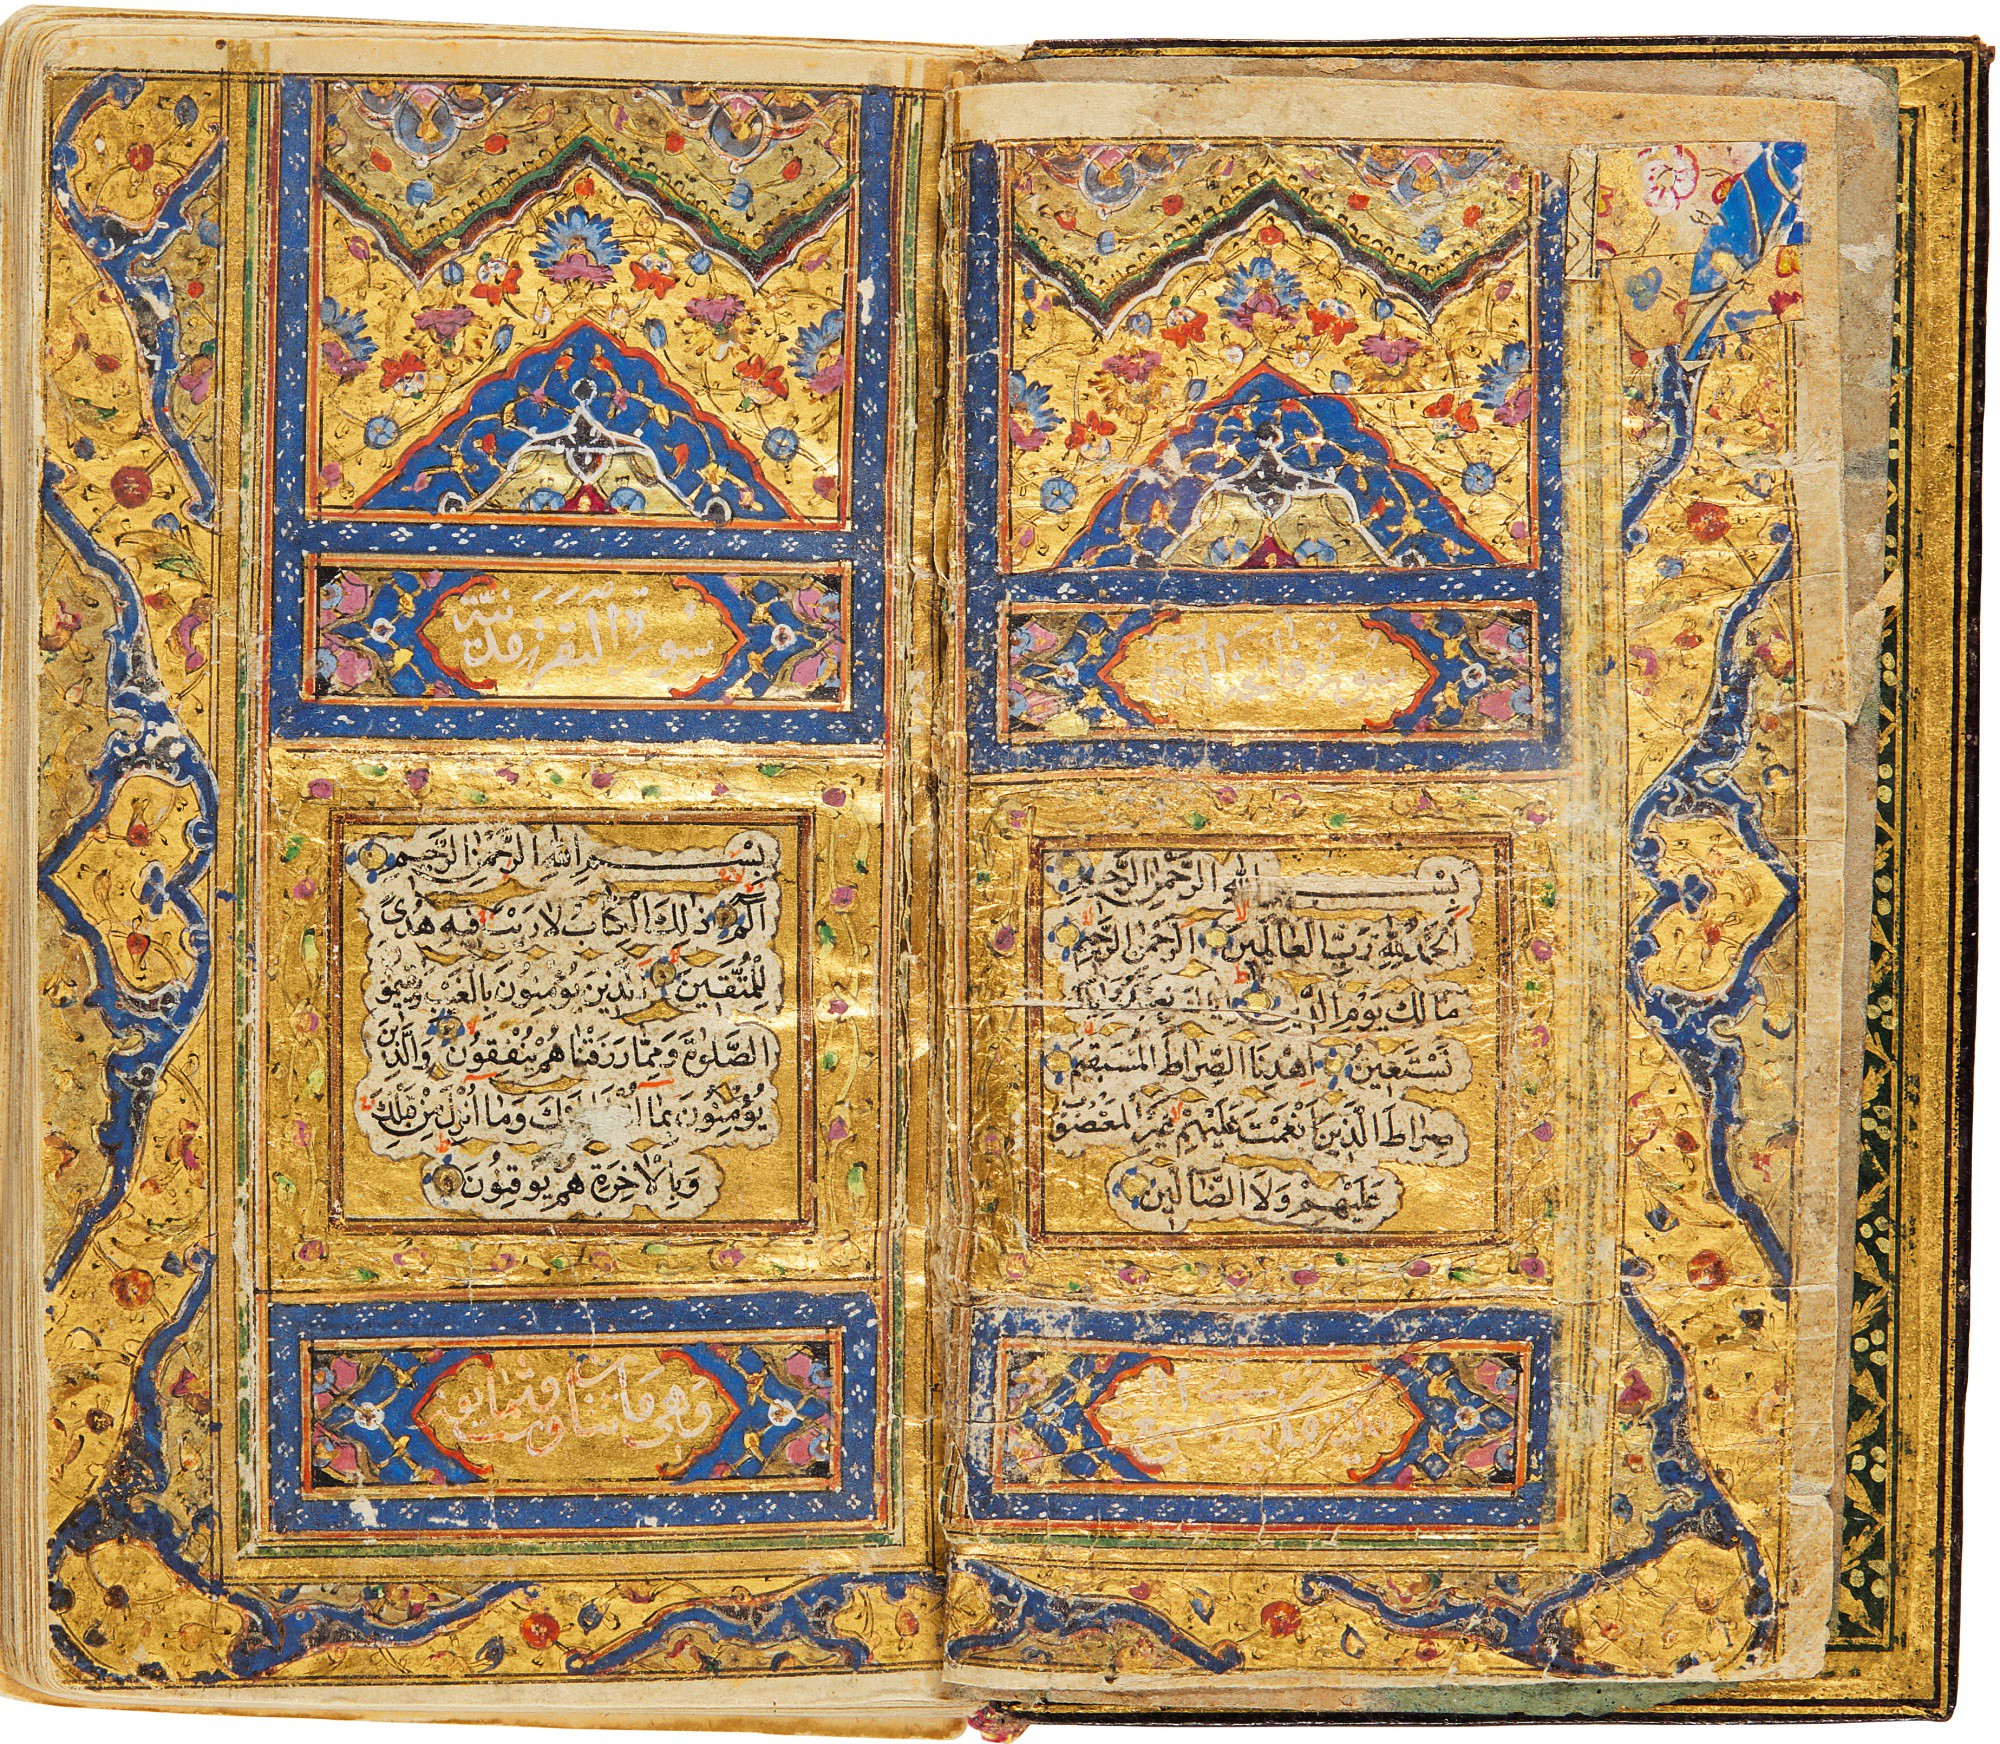 سورة فاتحة الكتاب
بِسْمِ اللهِ الرَّحْمٰنِ الرَّحِيمِ
اَلْحَمْدُ لِلّٰهِ رَبِّ الْعَالَمِينَ اَلرَّحْمٰنِ الرَّحِيمِ
مَالِكِ يَوْمِ الدِّينِ اِيَّاكَ نَعْبُدُ وَاِيَّاكَ
نَسْتَعِينُ اِهْدِنَا الصِّرَاطَ الْمُسْتَقِيمَ
صِرَاطَ الَّذِينَ اَنْعَمْتَ عَلَيْهِمْ غَيْرِ الْمَغْضُوبِ
عَلَيْهِمْ وَلَا الضَّالِّينَ
سورة البقرة مدنية
بِسْمِ اللهِ الرَّحْمٰنِ الرَّحِيمِ
الٓمٓ ذٰلِكَ الْكِتَابُ لَا رَيْبَ فِيهِ هُدًى
لِلْمُتَّقِينَ اَلَّذِينَ يُؤْمِنُونَ بِالْغَيْبِ وَيُقِيمُونَ
الصَّلٰوةَ وَمِمَّا رَزَقْنَاهُمْ يُنْفِقُونَ وَالَّذِينَ
يُؤْمِنُونَ بِمَا اُنْزِلَ اِلَيْكَ وَمَا اُنْزِلَ مِنْ قَبْلِكَ
وَبِالْاٰخِرَةِ هُمْ يُوقِنُونَ
وهى مايتان وست وثمانون